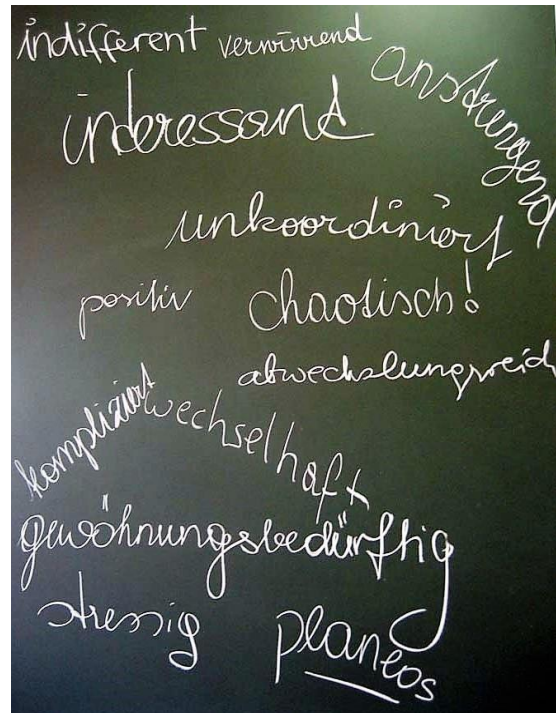 indifferent verwirrend
anstrengend
interessant
unkoordiniert
positiv chaotisch!
abwechslungsreich
kompliziert wechselhaft
gewöhnungsbedürftig
stressig planlos